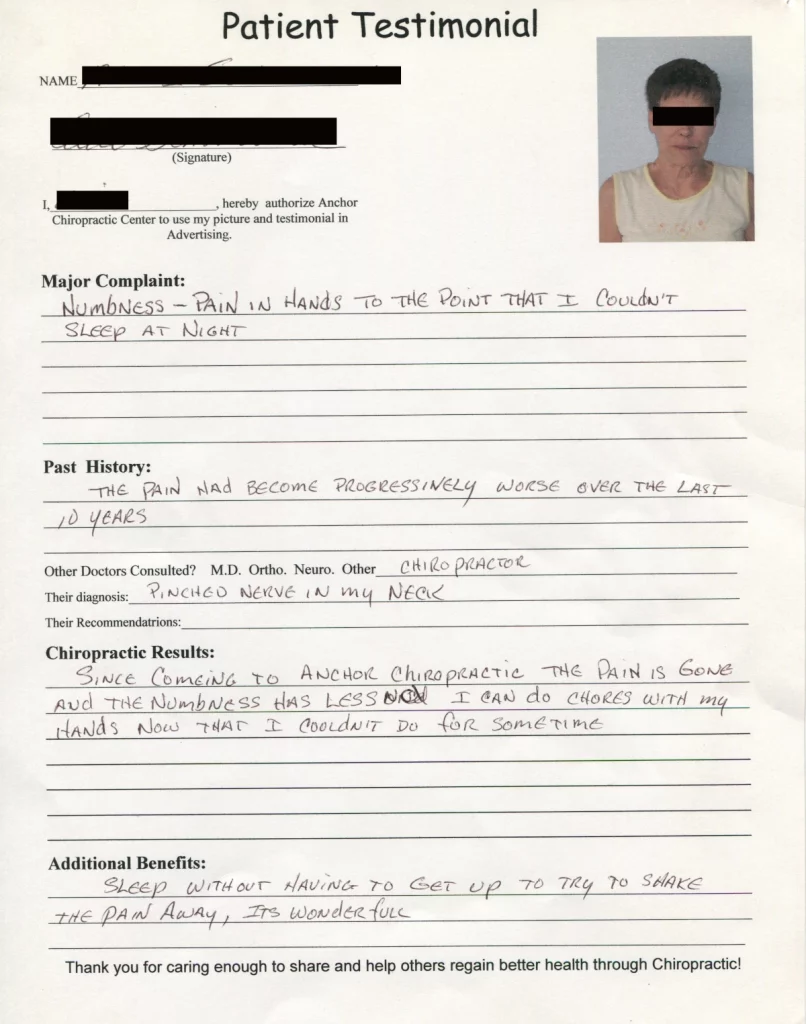 Patient Testimonial
NAME
(Signature)
I, , hereby authorize Anchor
Chiropractic Center to use my picture and testimonial in
Advertising.
Major Complaint:
NUMBNESS - PAIN IN HANDS TO THE POINT THAT I COULDN'T
SLEEP AT NIGHT
Past History:
THE PAIN HAD BECOME PROGRESSINELY WORSE OVER THE LAST
10 YEARS
Other Doctors Consulted? M.D. Ortho. Neuro. Other CHIROPRACTOR
Their diagnosis: PINCHED NERVE IN MY NECK
Their Recommendatrions:
Chiropractic Results:
SINCE COMEING TO ANCHOR CHIROPRACTIC THE PAIN IS GONE
AND THE NUMBNESS HAS I CAN DO CHORES WITH MY
HANDS NOW THAT I COULDN'T DO FOR SOMETIME
Additional Benefits:
SLEEP WITHOUT HAVING TO GET UP TO TRY TO SHAKE
THE PAIN AWAY, ITS WONDERFULL
Thank you for caring enough to share and help others regain better health through Chiropractic!